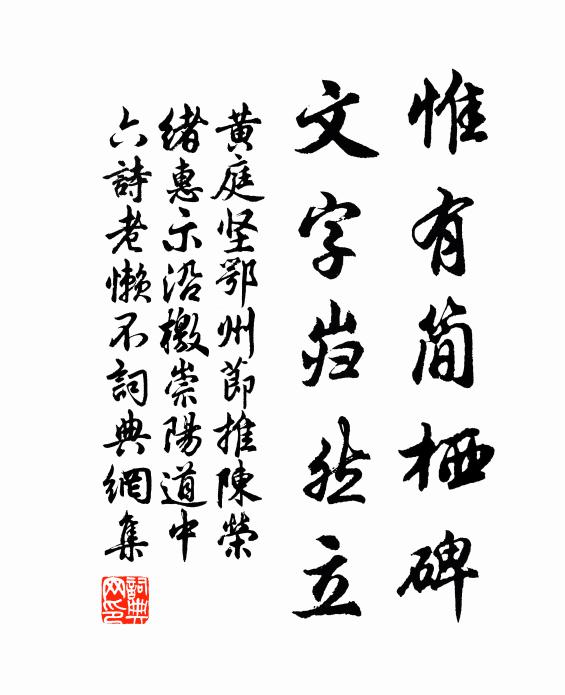 惟有简栖碑
文字岿然立
黄庭坚鄂州節推陳榮
緒惠示沿檄崇陽道中
六詩老懶不詞典網集
詞典
网印